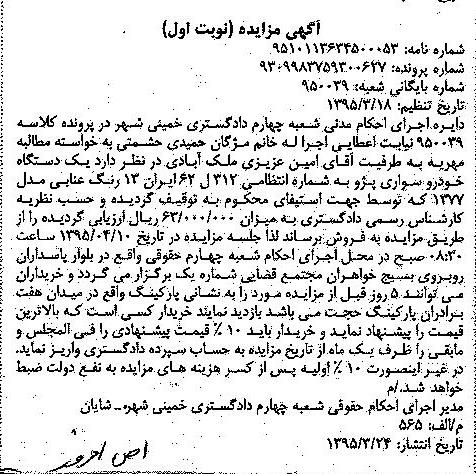 آگهی مزایده (نوبت اول)
شماره نامه: ۹۵۱۰۱۱۳۶۳۴۵۰۰۰۵۳
شماره پرونده: ۹۳۰۹۹۸۳۷۵۹۳۰۰۶۲۷
شماره بایگانی شعبه: ۹۵۰۰۳۹
تاریخ تنظیم: ۱۳۹۵/۳/۱۸
دایره اجرای احکام مدنی شعبه چهارم دادگستری خمینی شهر در پرونده کلاسه
۹۵۰۰۳۹ نیابت اعطایی اجرا له خانم مژگان حمیدی حشمتی به خواسته مطالبه
مهریه به طرفیت آقای امین عزیزی ملک آبادی در نظر دارد یک دستگاه
خودرو سواری پژو به شماره انتظامی ۳۱۲ ل ۶۲ ایران ۱۳ رنگ عنابی مدل
۱۳۷۷ که توسط جهت استیفای محکوم به توقیف گردیده و حسب نظریه
کارشناس رسمی دادگستری به میزان ۶۳/۰۰۰/۰۰۰ ریال ارزیابی گردیده را از
طریق مزایده به فروش برساند لذا جلسه مزایده در تاریخ ۱۳۹۵/۰۴/۱۰ ساعت
۰۸:۳۰ صبح در محل اجرای احکام شعبه چهارم حقوقی واقع در بلوار پاسداران
روبروی بسیج خواهران مجتمع قضایی شماره یک برگزار می گردد و خریداران
می توانند ۵ روز قبل از مزایده مورد را به نشانی پارکینگ واقع در میدان هفت
برادران پارکینگ حجت می باشد بازدید نمایند خریدار کسی است که بالاترین
قیمت را پیشنهاد نماید و خریدار باید ۱۰ ٪ قیمت پیشنهادی را فی المجلس و
مابقی را ظرف یک ماه از تاریخ مزایده به حساب سپرده دادگستری واریز نماید.
در غیر اینصورت ۱۰ ٪ اولیه پس از کسر هزینه های مزایده به نفع دولت ضبط
خواهد شد./م
مدیر اجرای احکام حقوقی شعبه چهارم دادگستری خمینی شهر- شایان
م/الف: ۵۶۵
تاریخ انتشار: ۱۳۹۵/۳/۲۴